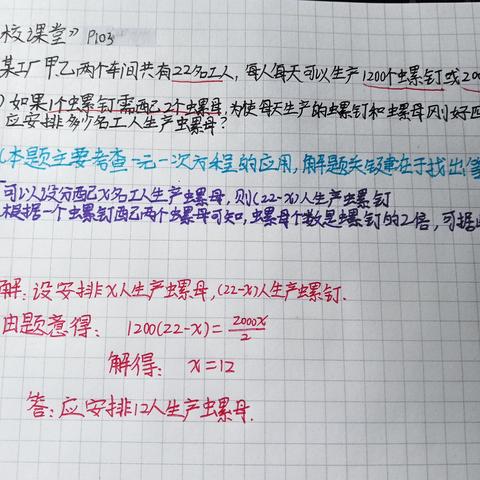 校课堂》 P103
某工厂甲乙两个车间共有22名工人，每人每天可以生产1200个螺钉或200
)如果1个螺钉需配2个螺母，为使每天生产的螺钉和螺母刚好
应安排多少名工人生产螺母？
(本题主要考查一元一次方程的应用，解题关键在于找出(等
可以设分配x名工人生产螺母，则(22-x)人生产螺钉
根据一个螺钉配两个螺母可知，螺母个数是螺钉的2倍，可据
解：设安排x人生产螺母，(22-x)人生产螺钉.
由题意得： 1200(22-x)=2000x/2
解得： x=12
答：应安排12人生产螺母.